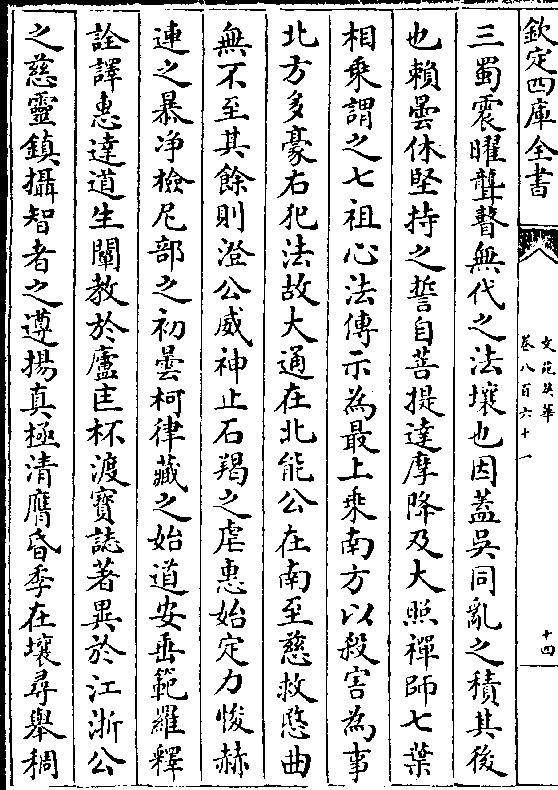 欽定四庫全書
文苑英華
卷八百六十一
十四
三蜀震曜聾瞽無代之法壤也因蓋吳同亂之積其後
也賴曇休堅持之誓自菩提達摩降及大照禪師七葉
相乘謂之七祖心法傳示為最上乘南方以殺害為事
北方多豪右犯法故大通在北能公在南至慈救愍曲
無不至其餘則澄公威神止石羯之虐惠始定力悛赫
連之暴净檢尼部之初曇柯律藏之始道安垂範羅釋
詮譯惠達道生闡教於廬𠥙杯渡寶誌著異於江浙公
之慈靈鎮攝智者之遵揚真極清膺昏季在壤尋舉稠